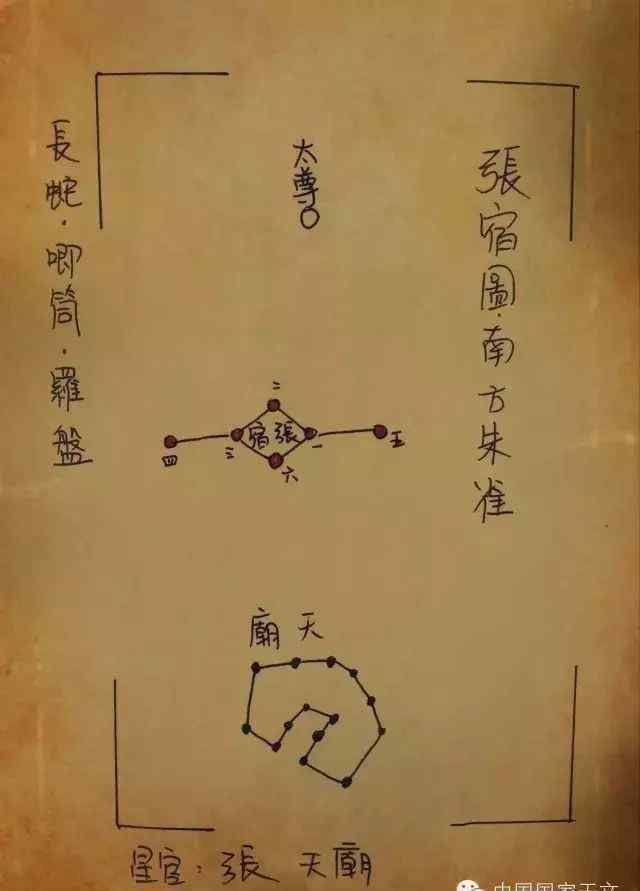 張宿圖·南方朱雀
太尊
長蛇·唧筒·羅盤
二
張宿
四
三
一
五
六
天廟
星官：張 天廟
中国国家天文